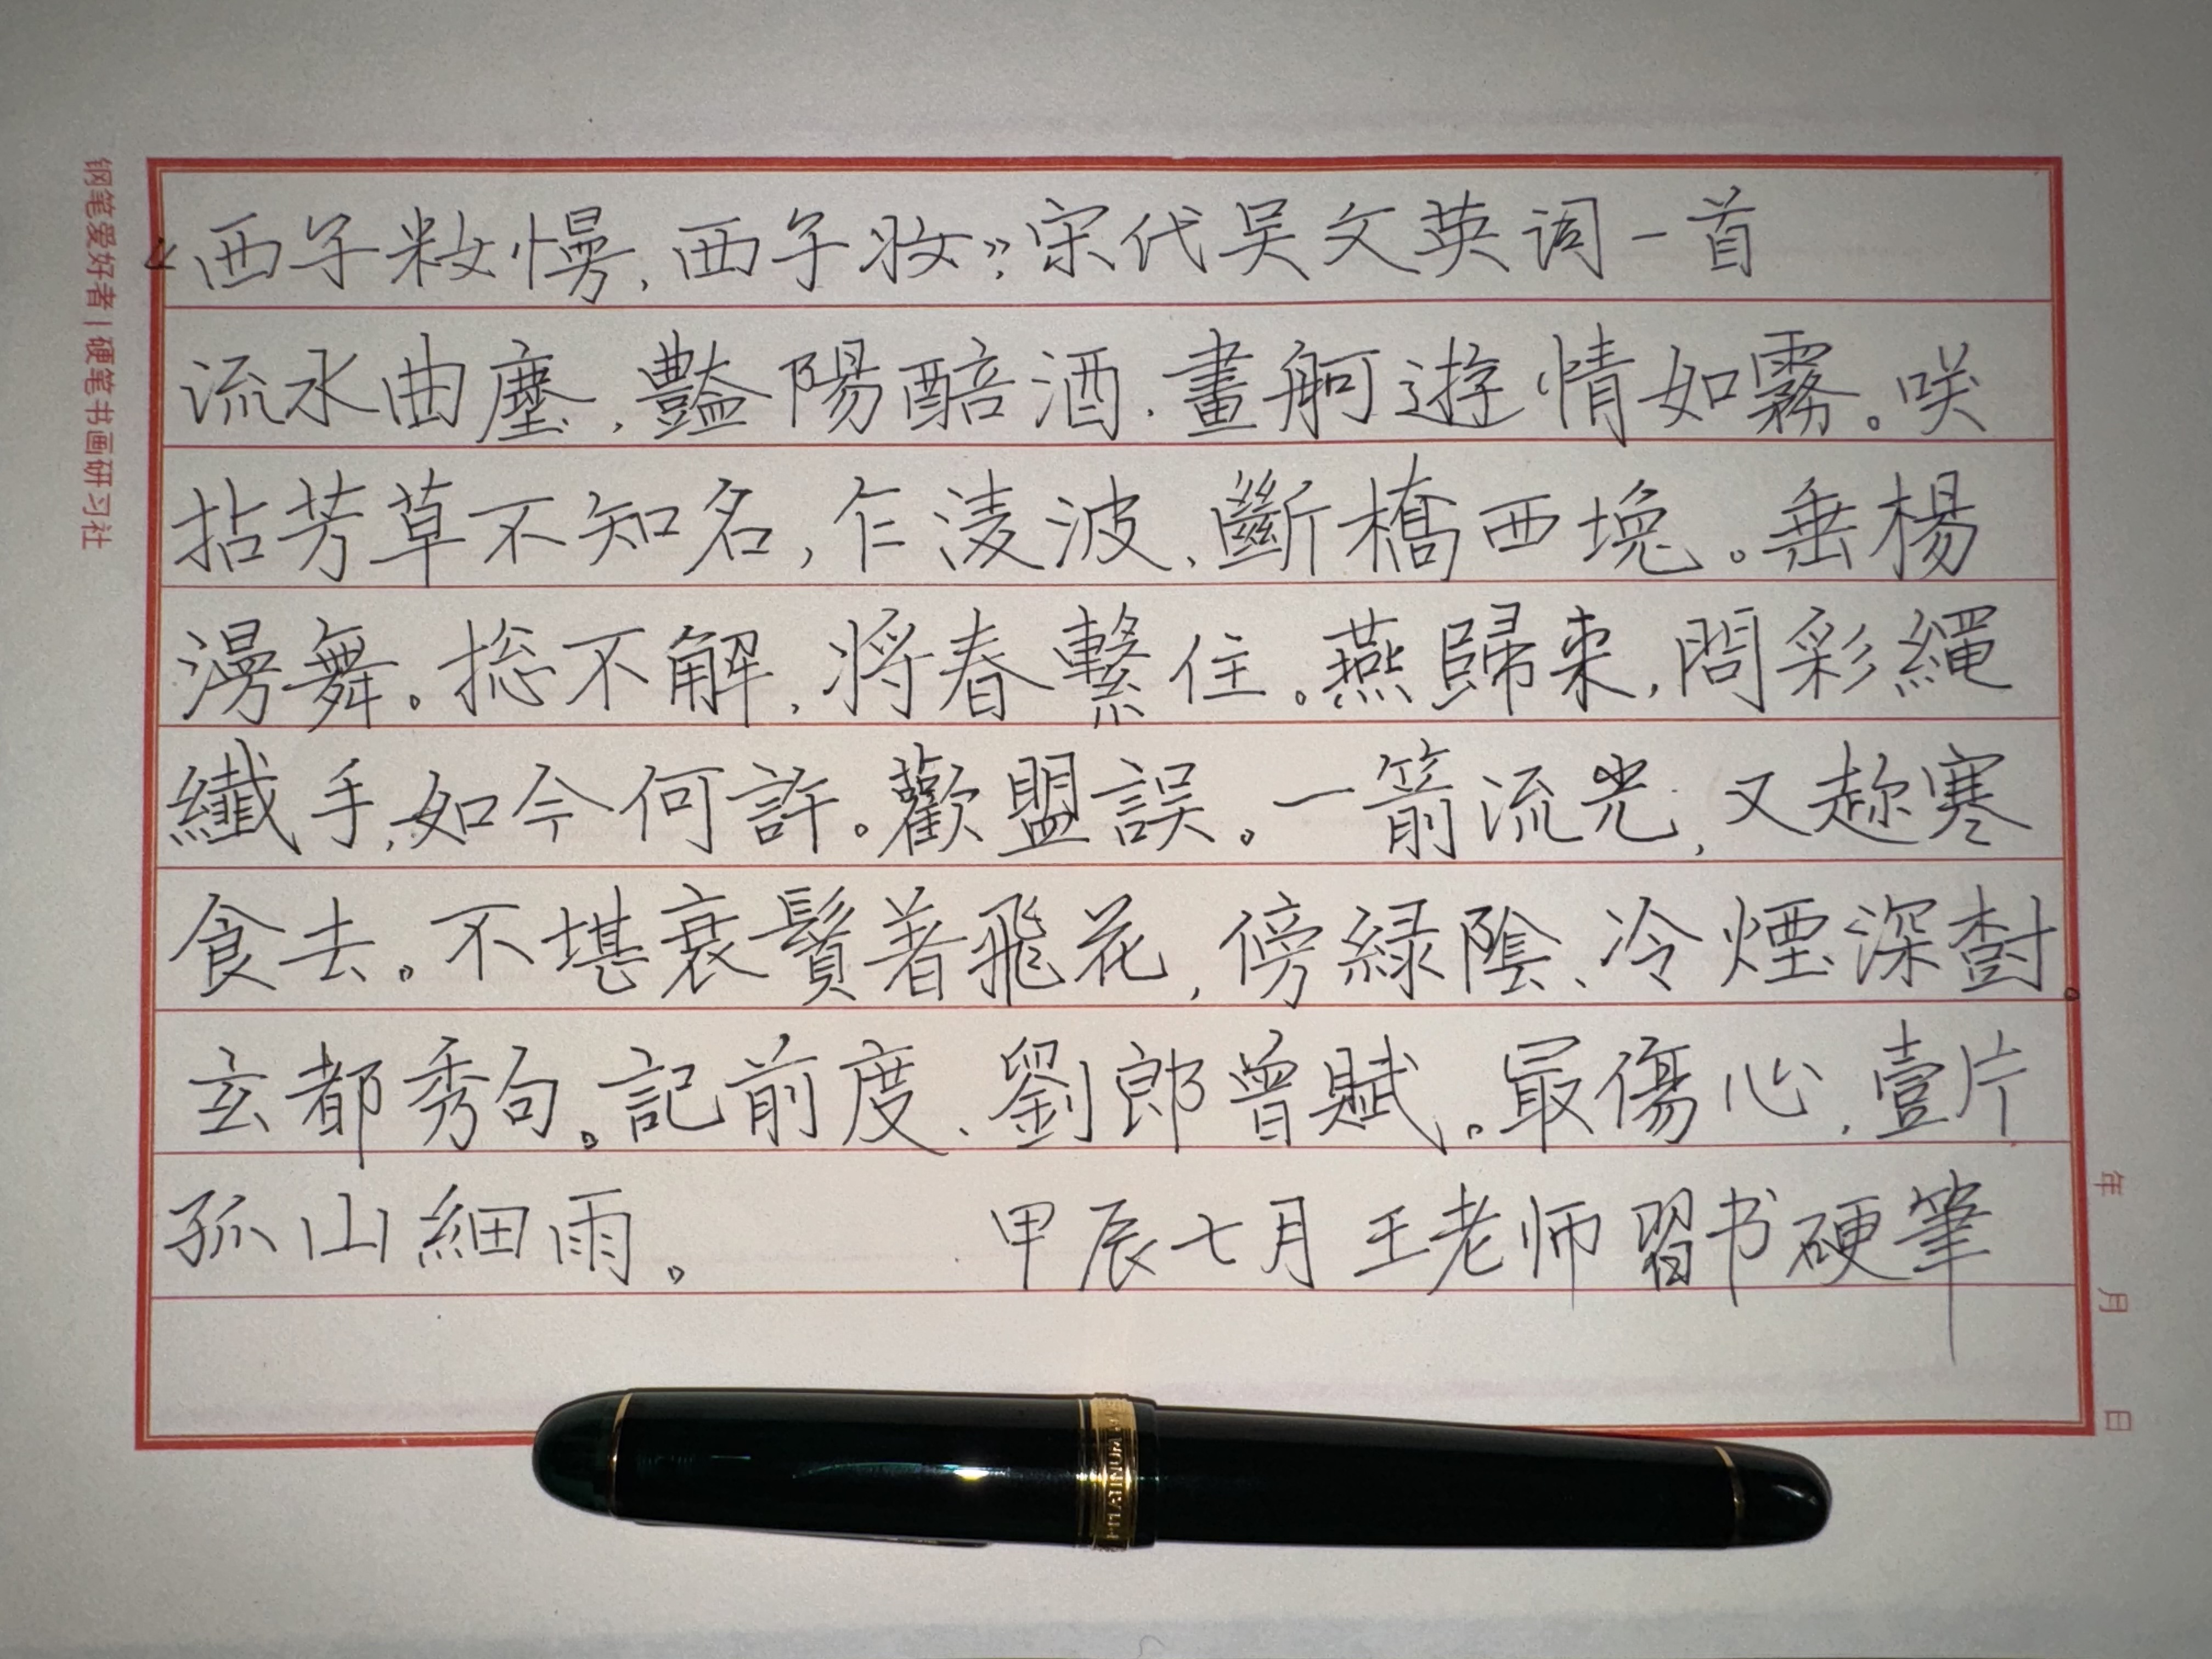 《西子妝慢,西子妆》宋代吴文英词一首
流水曲塵,豔陽醅酒.畫舸遊情如霧。咲
拈芳草不知名,乍淩波,斷橋西堍。垂楊
漫舞。捴不解,将春繫住。燕歸来,問彩繩
纖手,如今何許。歡盟誤。一箭流光,又趂寒
食去。不堪衰鬢着飛花,傍緑陰、冷煙深樹。
玄都秀句。記前度、劉郎曾賦。最傷心,壹片
孤山細雨。 甲辰七月王老师習书硬筆
钢笔爱好者|硬笔书画研习社
年 月 日
PLATINUM